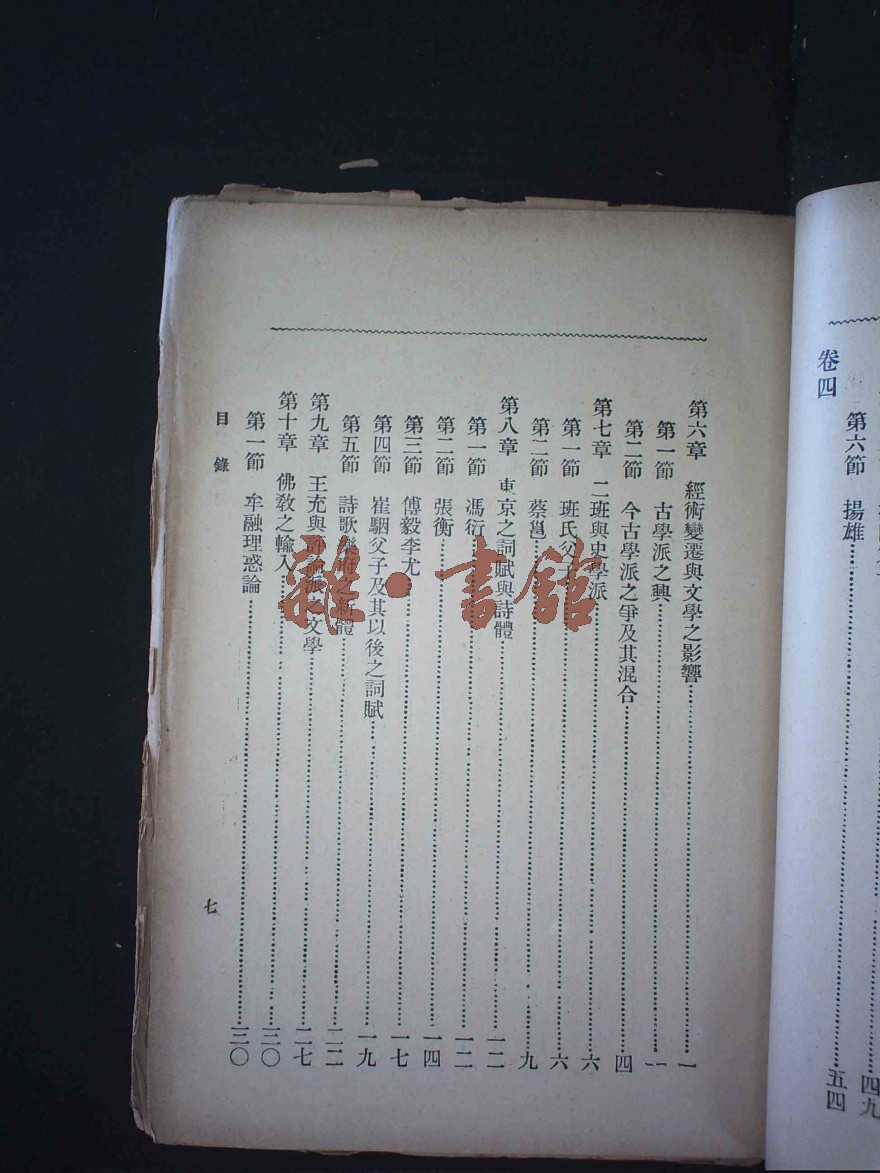 卷四
第六節 揚雄 四九
五四
第六章 經術變遷與文學之影響 一
第一節 古學派之興 一
第二節 今古學派之爭及其混合 四
第七章 二班與史學派 六
第一節 班氏父子 六
第二節 蔡邕 九
第八章 東京之詞賦與詩體 一二
第一節 馮衍 一二
第二節 張衡 一四
第三節 傅毅李尤 一七
第四節 崔駰父子及其以後之詞賦 一九
第五節 詩歌樂府之新體 二二
第九章 王充與評論派之文學 二七
第十章 佛教之輸入 三〇
第一節 牟融理惑論 三〇
目錄
七
雜·書館